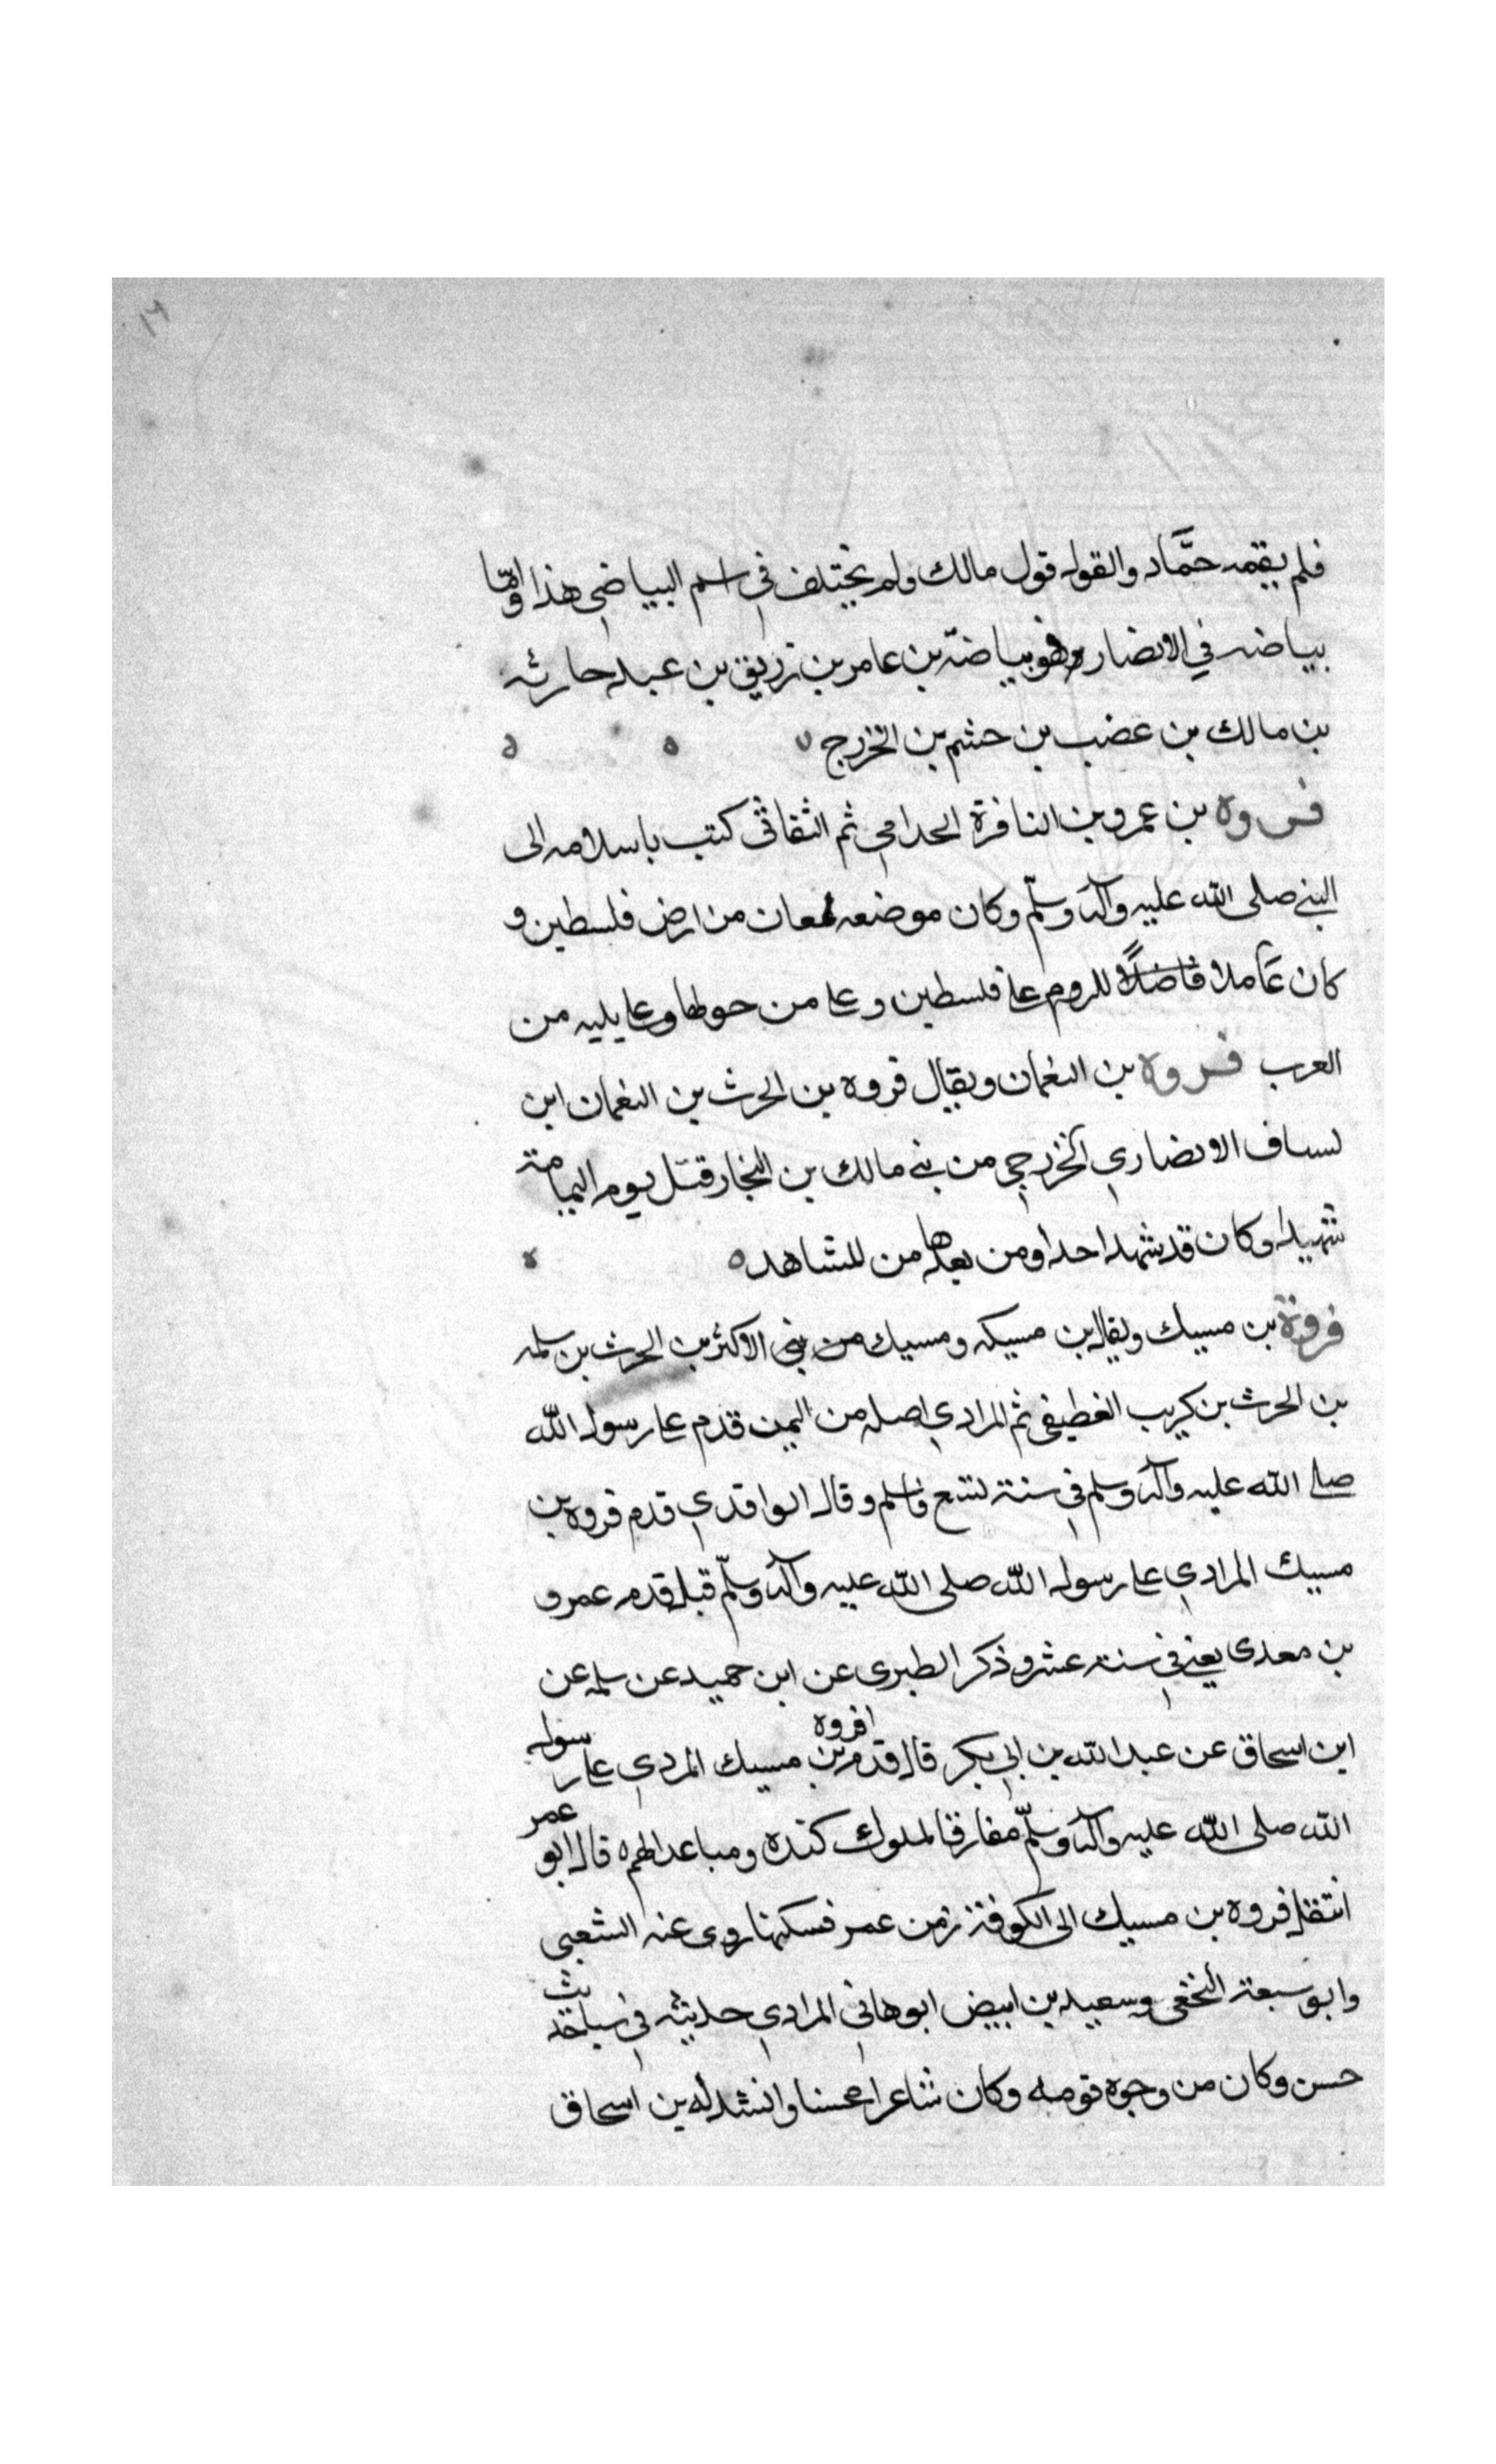 ١٦
فلم يقمه حمَّاد والقول قول مالك ولم يختلف في اسم البياضي هذا وامّا
بياضه في الانصار وهو بياضة بن عامر بن زريق بن عبد حارثه
بن مالك بن عضب بن حشم بن الخزرج ه ه ه
فروه بن عمرو بن النافرة الحدامي ثم الثقاثي كتب باسلامه الى
النبي صلى الله عليه وآله وسلّم وكان موضعه لمعان من ارض فلسطين و
كان عَاملا فاضلًا للروم على فلسطين وعلى من حولها وعلى يليه من
العرب فروه بن النعمان ويقال فروه بن الحرث بن النعمان ابن
لساف الانصاري الخزرجي من بني مالك بن النجار قتل يوم اليمامة
شهيدا وكان قد شهد احدا ومن بعدها من المشاهد ه ه
فروة بن مسيك ويقال بن مسيكه ومسيك من بني الاكثر بن الحرث بن سلمه
بن الحرث بن كريب الغطيفي ثم المرادي اصله من اليمن قدم على رسول الله
صلى الله عليه وآله وسلم في سنة تسع فاسلم وقال الواقدي قدم فروه بن
مسيك المرادي على رسول الله صلى الله عليه وآله وسلّم قبل قدم عمرو
بن معدى يعني في سنة عشر وذكر الطبرى عن ابن حميد عن سلمه عن
ابن اسحاق عن عبد الله بن ابي بكر قال قدم فروه بن مسيك المردي على رسول
الله صلى الله عليه وآله وسلّم مفارقا لملوك كنده ومباعدا لهم ه قال ابو عمر
انتقل فروه بن مسيك الى الكوفة زمن عمر فسكنها روى عنه الشعبي
وابو سبعة النخعي وسعيد بن ابيض ابو هاني المرادي حديثه في سبا حديث
حسن وكان من وجوه قومه وكان شاعرا محسنا وانشد له بن اسحاق